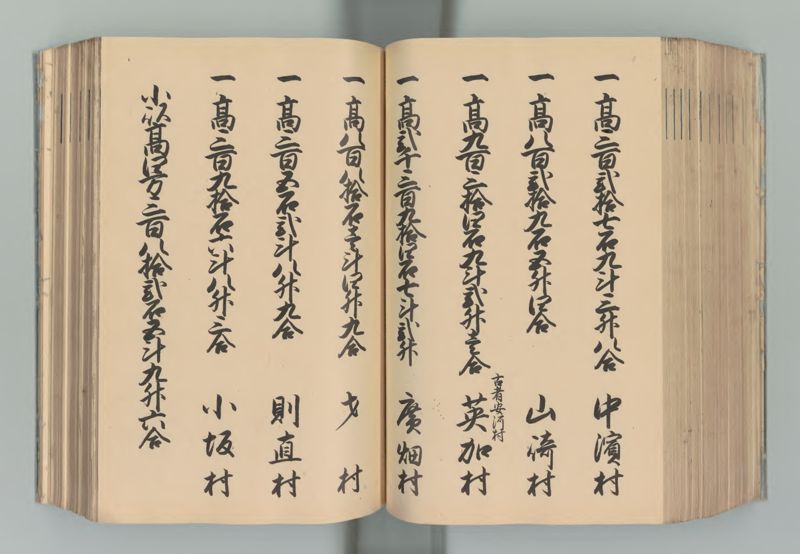 一高三百弐拾七石九斗三升八合 中濱村
一高八百弐拾九石五升四合 山﨑村
一高九百三拾四石九斗弐升壱合 英加村
古者安河村
一高弐千三百九拾四石七斗弐升 廣畑村
一高八百八拾石壱斗四升九合 才村
一高三百五石弐斗八升九合 則直村
一高三百九拾石六斗八升三合 小坂村
小以高四万三百八拾弐石五斗九升六合